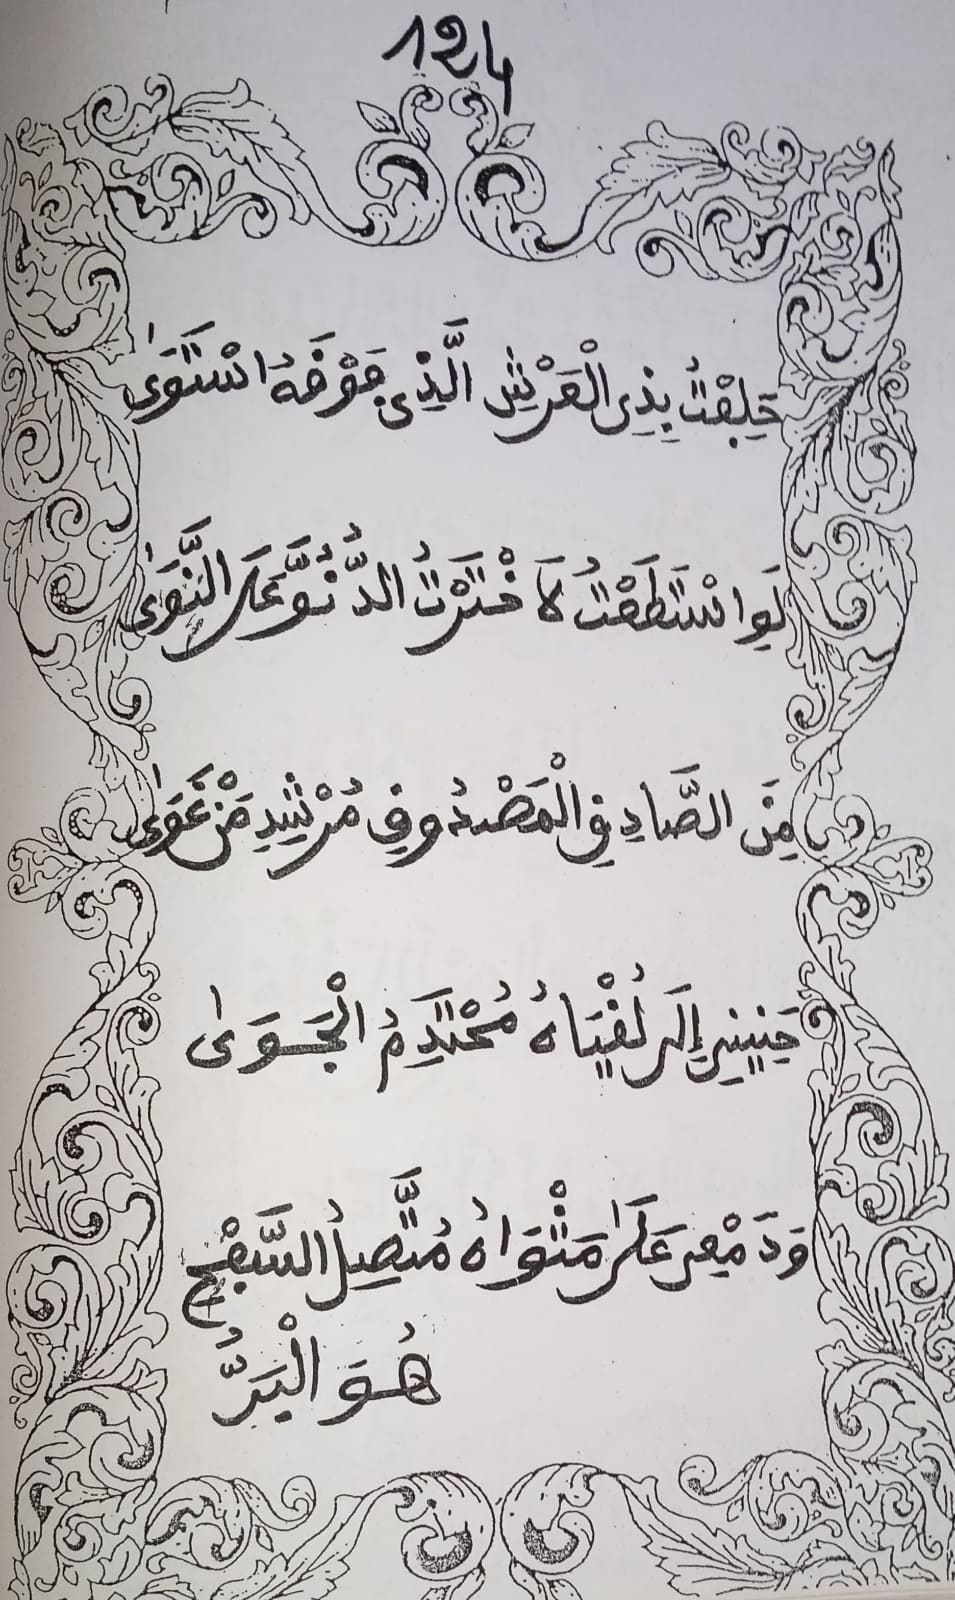 124
حَلِفْتُ بِذِي الْعَرْشِ الَّذِي فَوْقَهُ اسْتَوَىٰ
لَوِ اسْتَطَعْتُ لَاخْتَرْتُ الدُّنُوَّ عَلَى النَّوَىٰ
مِنَ الصَّادِقِ الْمَصْدُوقِ مُرْشِدِ مَنْ غَوَىٰ
حَنِينِي إِلَى لُقْيَاهُ مُحْتَدِمُ الْجَوَىٰ
وَدَمْعِي عَلَىٰ مَثْوَاهُ مُتَّصِلُ السَّفْحِ
هُوَ الْبَرُّ